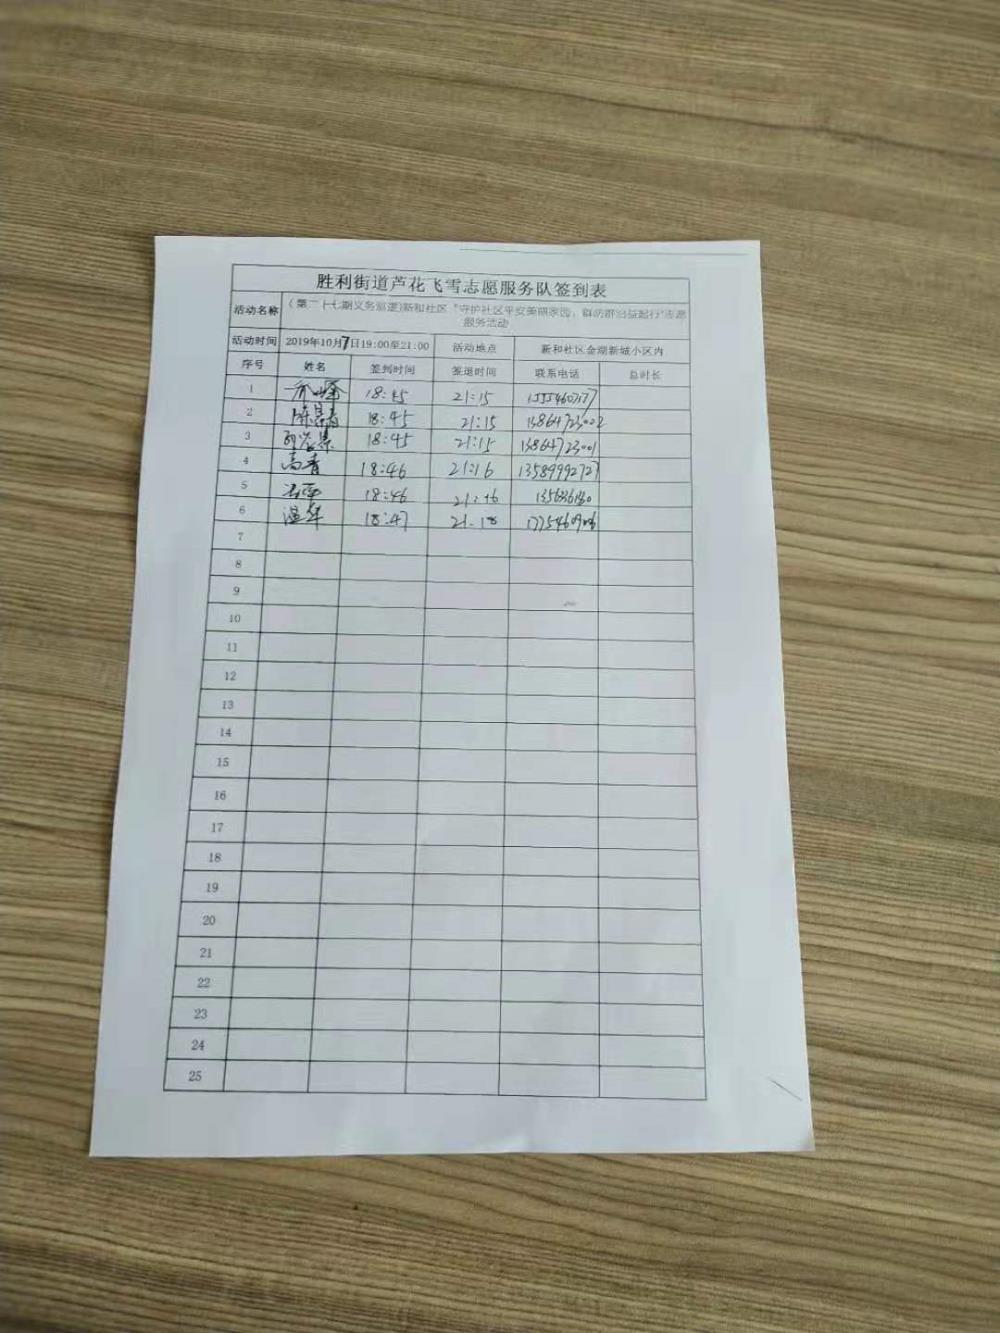 胜利街道芦花飞雪志愿服务队签到表
活动名称 (第二十七期义务巡逻)新和社区“守护社区平安美丽家园，群防群治益起行”志愿
服务活动
活动时间 2019年10月7日19:00至21:00 活动地点 新和社区金湖新城小区内
序号 姓名 签到时间 签退时间 联系电话 总时长
1 18:45 21:15
2 18:45 21:15 13864723002
3 18:45 21:15 13864723001
4 高青 18:46 21:16 13589992727
5 18:46 21:16
6 18:47 21:18
7
8
9
10
11
12
13
14
15
16
17
18
19
20
21
22
23
24
25